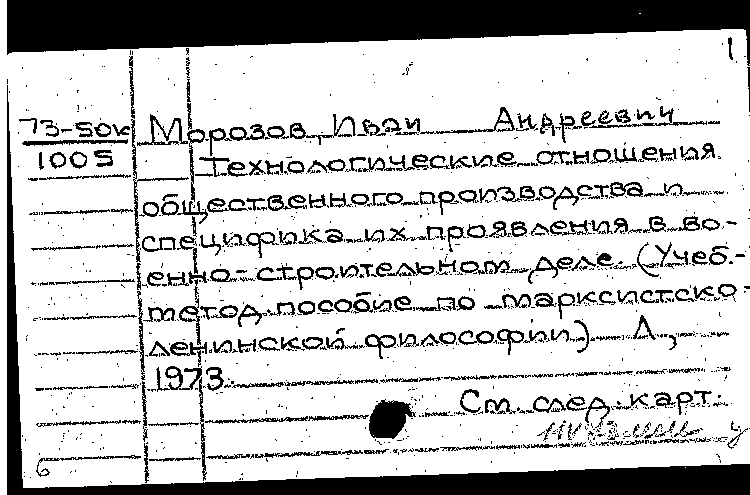 1
73-50к Морозов, Иван Андреевич
1005 Технологические отношения
общественного производства и
специфика их проявления в во-
енно-строительном деле. (Учеб.-
метод. пособие по марксистско-
ленинской философии) Л,
1973.
См. след. карт.
6